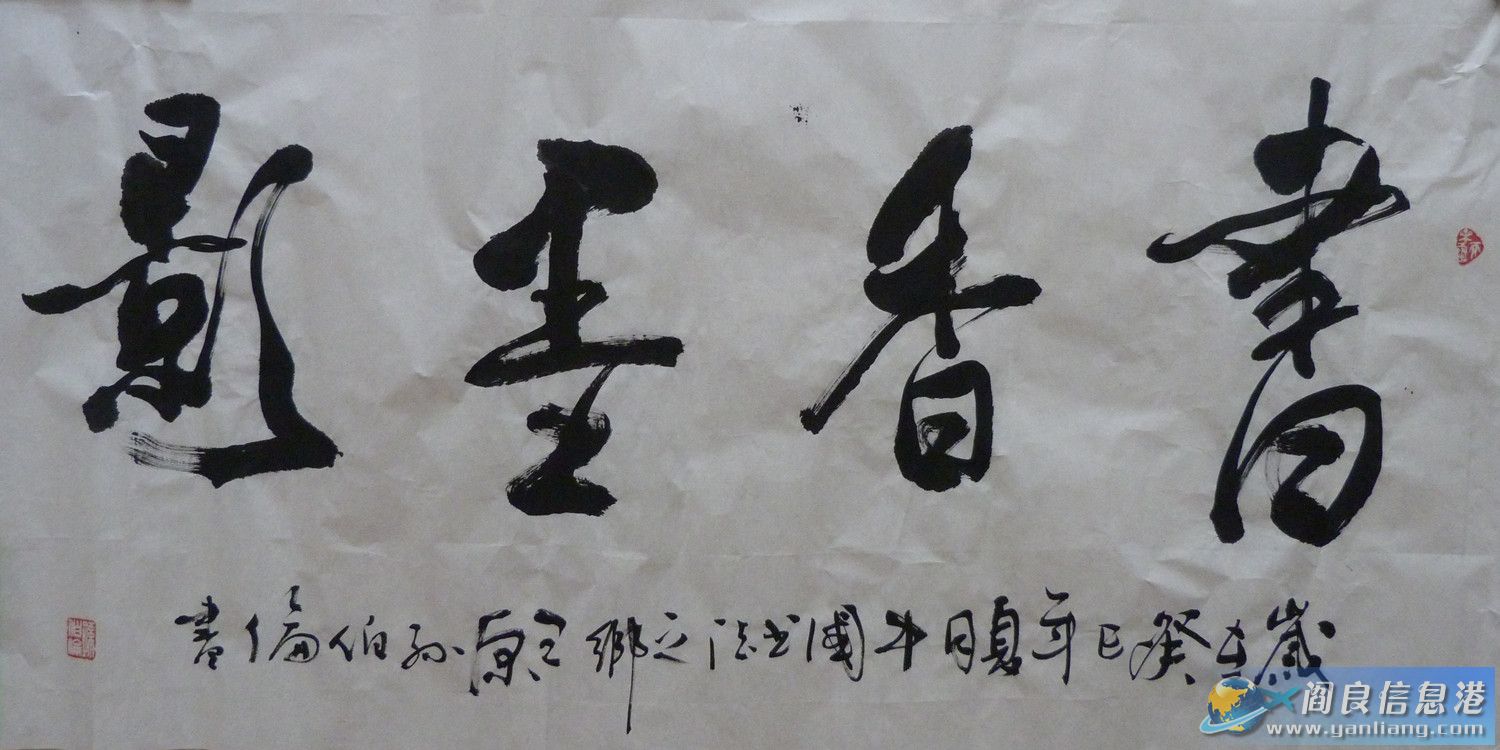 書香墨影
歲在癸巳年夏月中國书法之鄉三原孙伯倫書
阎良信息港
www.yanliang.com